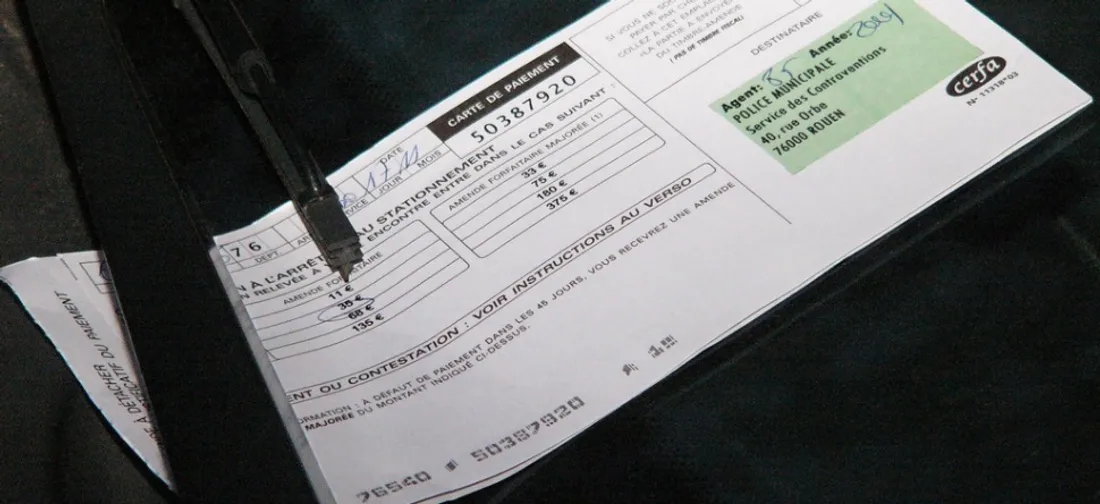 SI VOUS NE SO
PAYER PAR CHÈ
COLLEZ À CET EMPLAC
«LA PARTIE À ENVOYE
DU TIMBRE-AMENDE
(PAS DE TIMBRE FISCAL)
DESTINATAIRE
Agent: 85 Année:
POLICE MUNICIPALE
Service des Contraventions
40, rue Orbe
76000 ROUEN
cerfa
N° 11318*03
CARTE DE PAIEMENT
50387920
DATE
17 11
JOUR MOIS
76
DEPT
AU STATIONNEMENT
N À L'ARRÊT
N RELEVÉE À
ENCONTRE ENTRE DANS LE CAS SUIVANT :
AMENDE FORFAITAIRE
11 €
35 €
68 €
135 €
AMENDE FORFAITAIRE MAJORÉE (1)
33 €
75 €
180 €
375 €
ENT OU CONTESTATION : VOIR INSTRUCTIONS AU VERSO
ORMATION : À DÉFAUT DE PAIEMENT DANS LES 45 JOURS, VOUS RECEVREZ UNE AMENDE
MAJORÉE DU MONTANT INDIQUÉ CI-DESSUS.
76540 50387920
À DÉTACHER
IFICATIF DU PAIEMENT